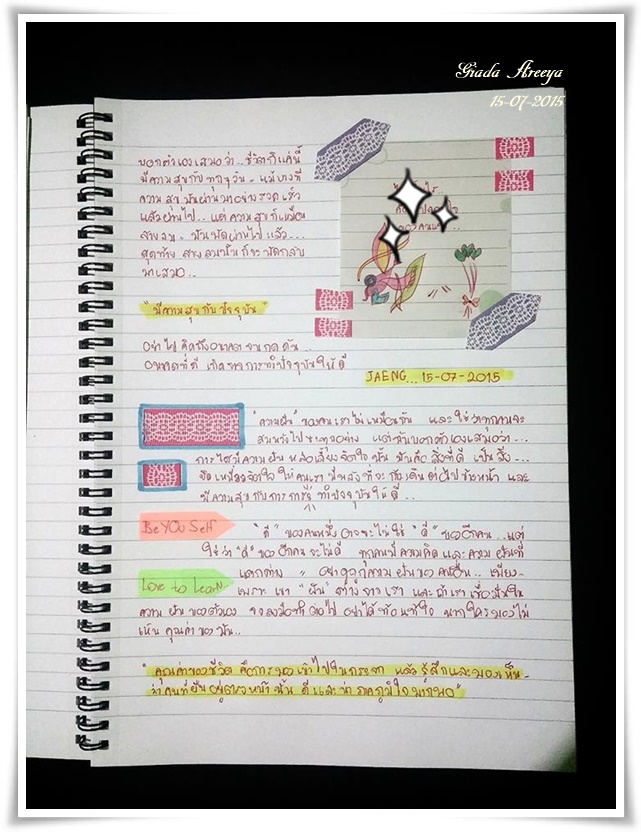 Giada Areeya
15-07-2015
บอกตัวเองเสมอว่า.. ชีวิตก็แค่นี้
มีความสุขกับทุกๆวัน. แม้บางที
ความสุขมันผ่านมาอย่างรวดเร็ว
แล้วผ่านไป.. แต่ความสุขก็เหมือน
สายลม. มันพัดผ่านไปแล้ว...
สุดท้าย สายลมนั้นก็จะพัดกลับ
มาเสมอ..
"มีความสุขกับปัจจุบัน"
อย่าไปคิดถึงอนาคตจนกดดัน..
อนาคตที่ดี เกิดจากการทำปัจจุบันให้ดี
JAENG... 15-07-2015
"ความฝัน" ของคนเราไม่เหมือนกัน และใช่ว่าทุกคนจะ
สมหวังไปซะทุกอย่าง แต่ฉันบอกตัวเองเสมอว่า...
การได้มีความฝันหล่อเลี้ยงจิตใจนั้น มันคือสิ่งที่ดี เป็นสิ่ง...
ยึดเหนี่ยวจิตใจ ให้คนเรามีพลังที่จะก้าวเดินต่อไปข้างหน้า และ
มีความสุขกับการทำปัจจุบันให้ดี..
Be YOU Self
"ดี" ของคนหนึ่ง อาจจะไม่ใช่ "ดี" ของอีกคน...แต่
ใช่ว่า "ดี" ของอีกคนจะไม่ดี ทุกคนมีความคิดและความฝันที่
แตกต่าง อย่าดูถูกความฝันของคนอื่น.. เพียง-
Love to Learn
เพราะเขา "ฝัน" ต่างจากเรา และถ้าเราเชื่อมั่นใน
ความฝันของตัวเอง จงลงมือทำต่อไป อย่าได้ท้อแท้ใจ หากใครมองไม่
เห็นคุณค่าของมัน..
"คุณค่าของชีวิต คือการมองเข้าไปในกระจก แล้วรู้สึกและมองเห็น-
ว่าคนที่ยืนอยู่ตรงหน้านั้น ดีและน่าภาคภูมิใจมากพอ"